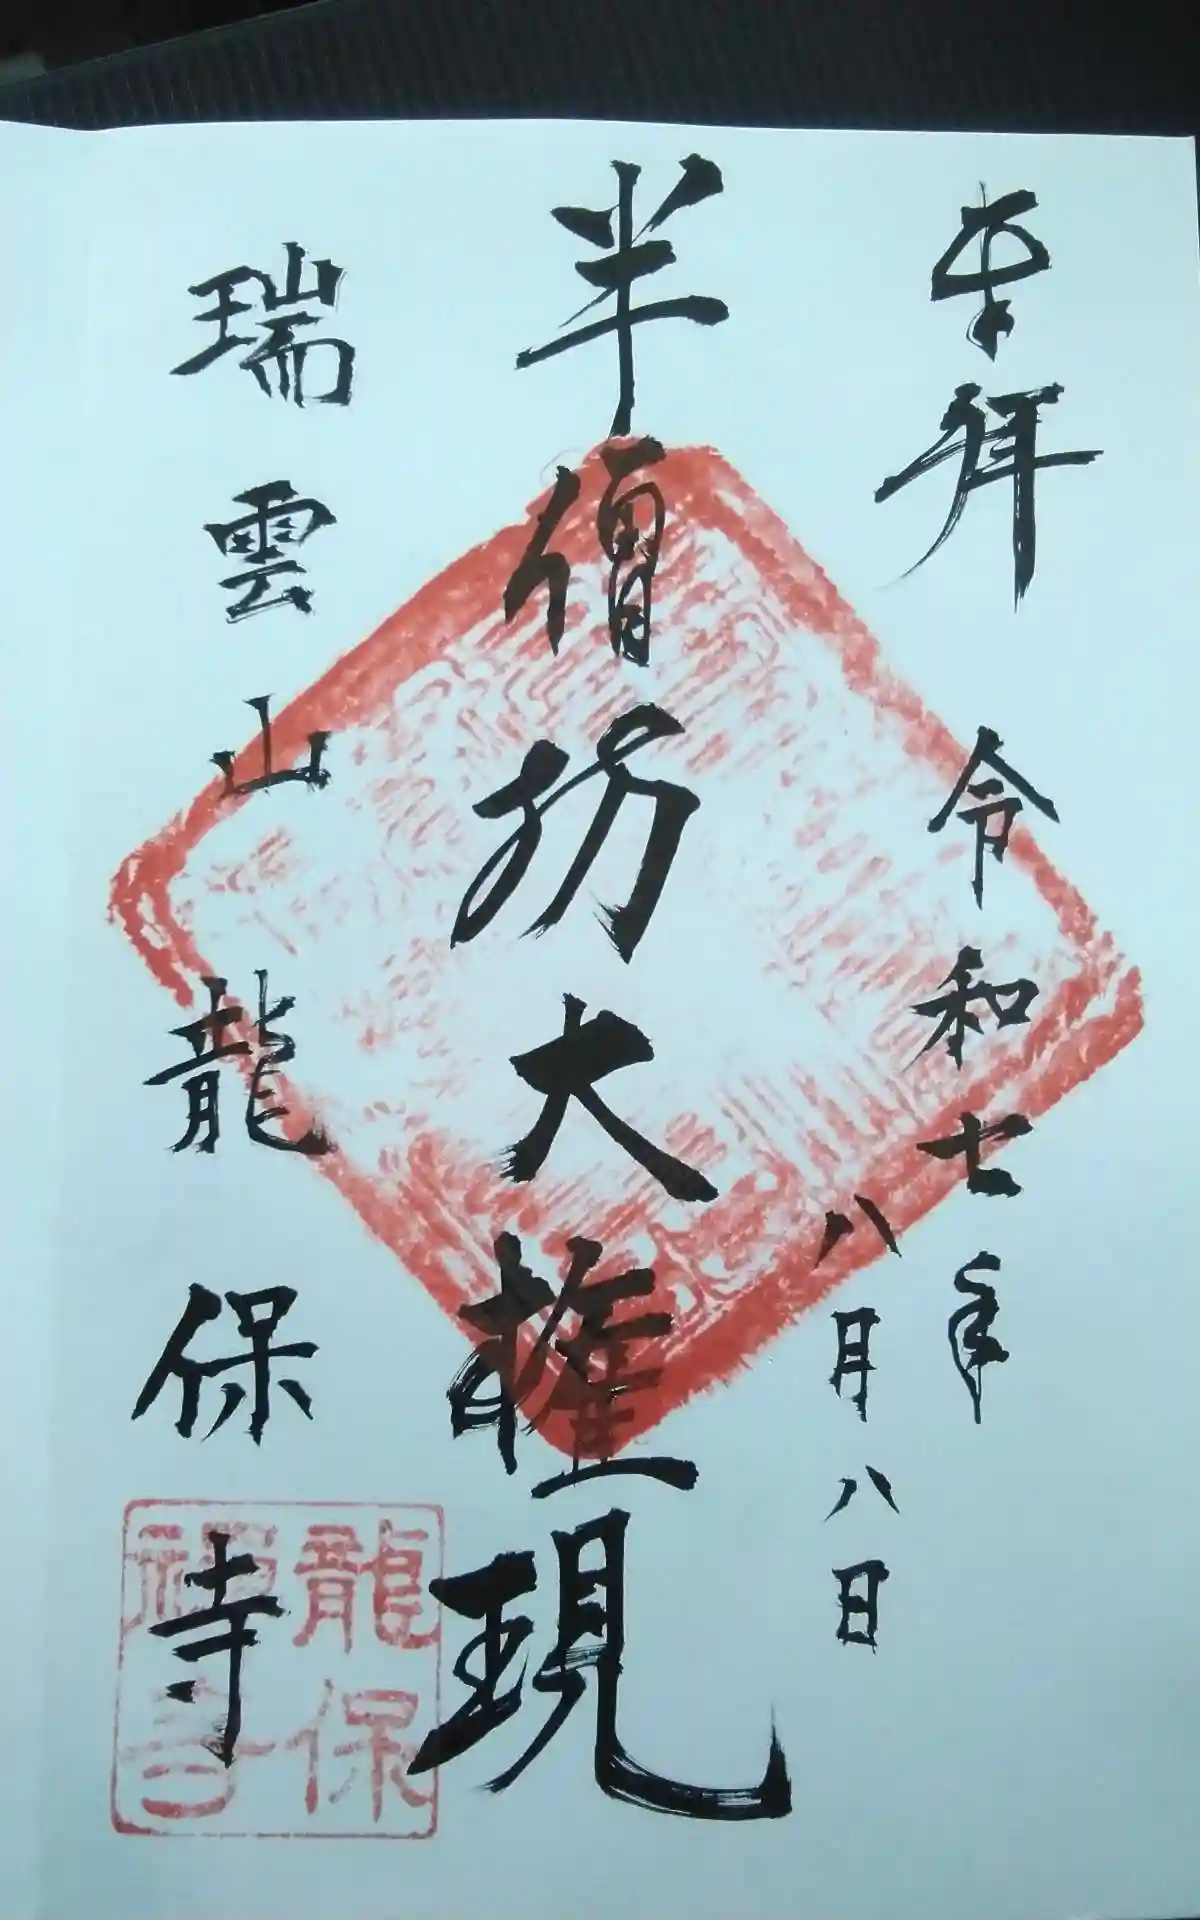 奉拝
令和七年
八月八日
半僧坊大権現
瑞雲山龍保寺
龍保
禅寺